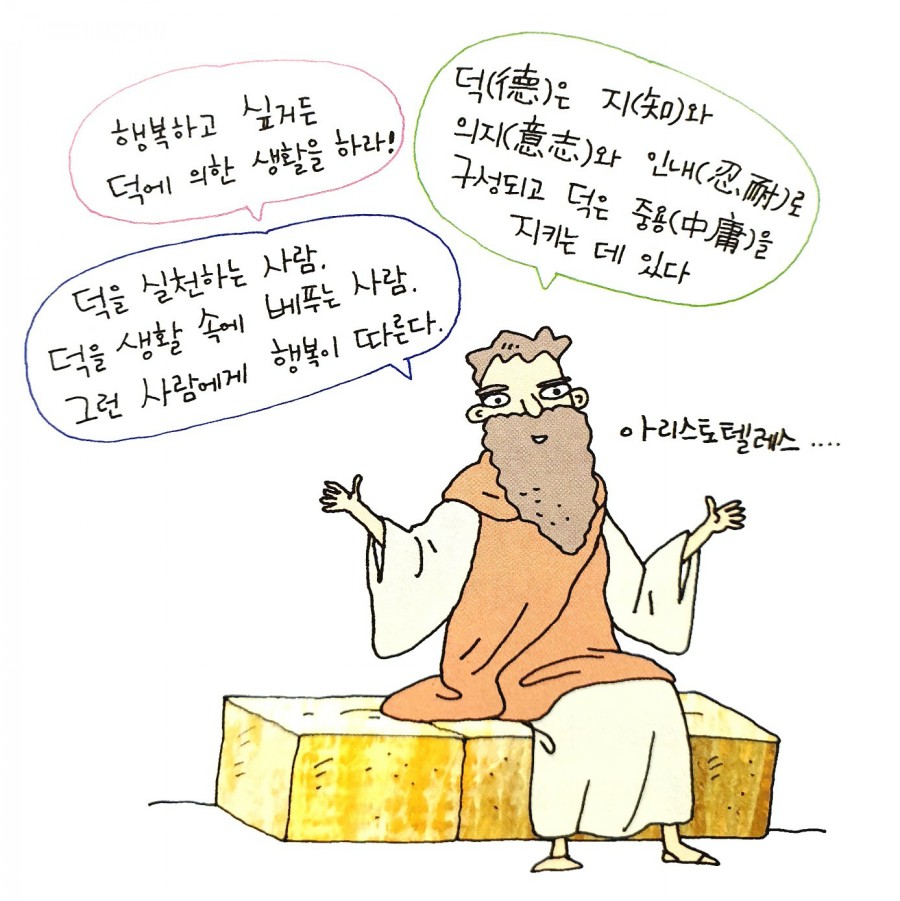 행복하고 싶거든
덕에 의한 생활을 하라!
덕(德)은 지(知)와
의지(意志)와 인내(忍耐)로
구성되고 덕은 중용(中庸)을
지키는 데 있다
덕을 실천하는 사람.
덕을 생활 속에 베푸는 사람.
그런 사람에게 행복이 따른다.
아리스토텔레스 ....